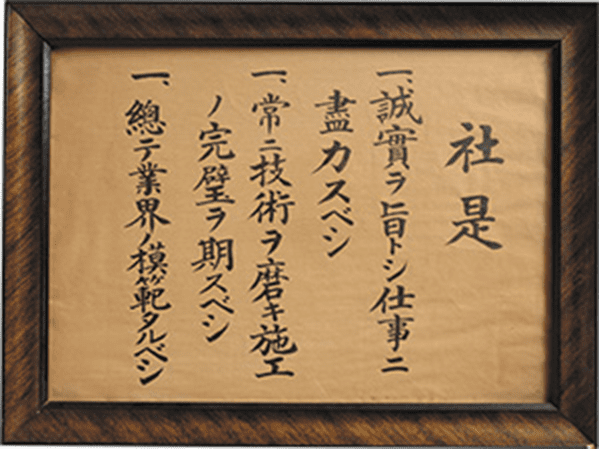 社是
一、誠實ヲ旨トシ仕事ニ
盡力スベシ
一、常ニ技術ヲ磨キ施工
ノ完璧ヲ期スベシ
一、總テ業界ノ模範タルベシ